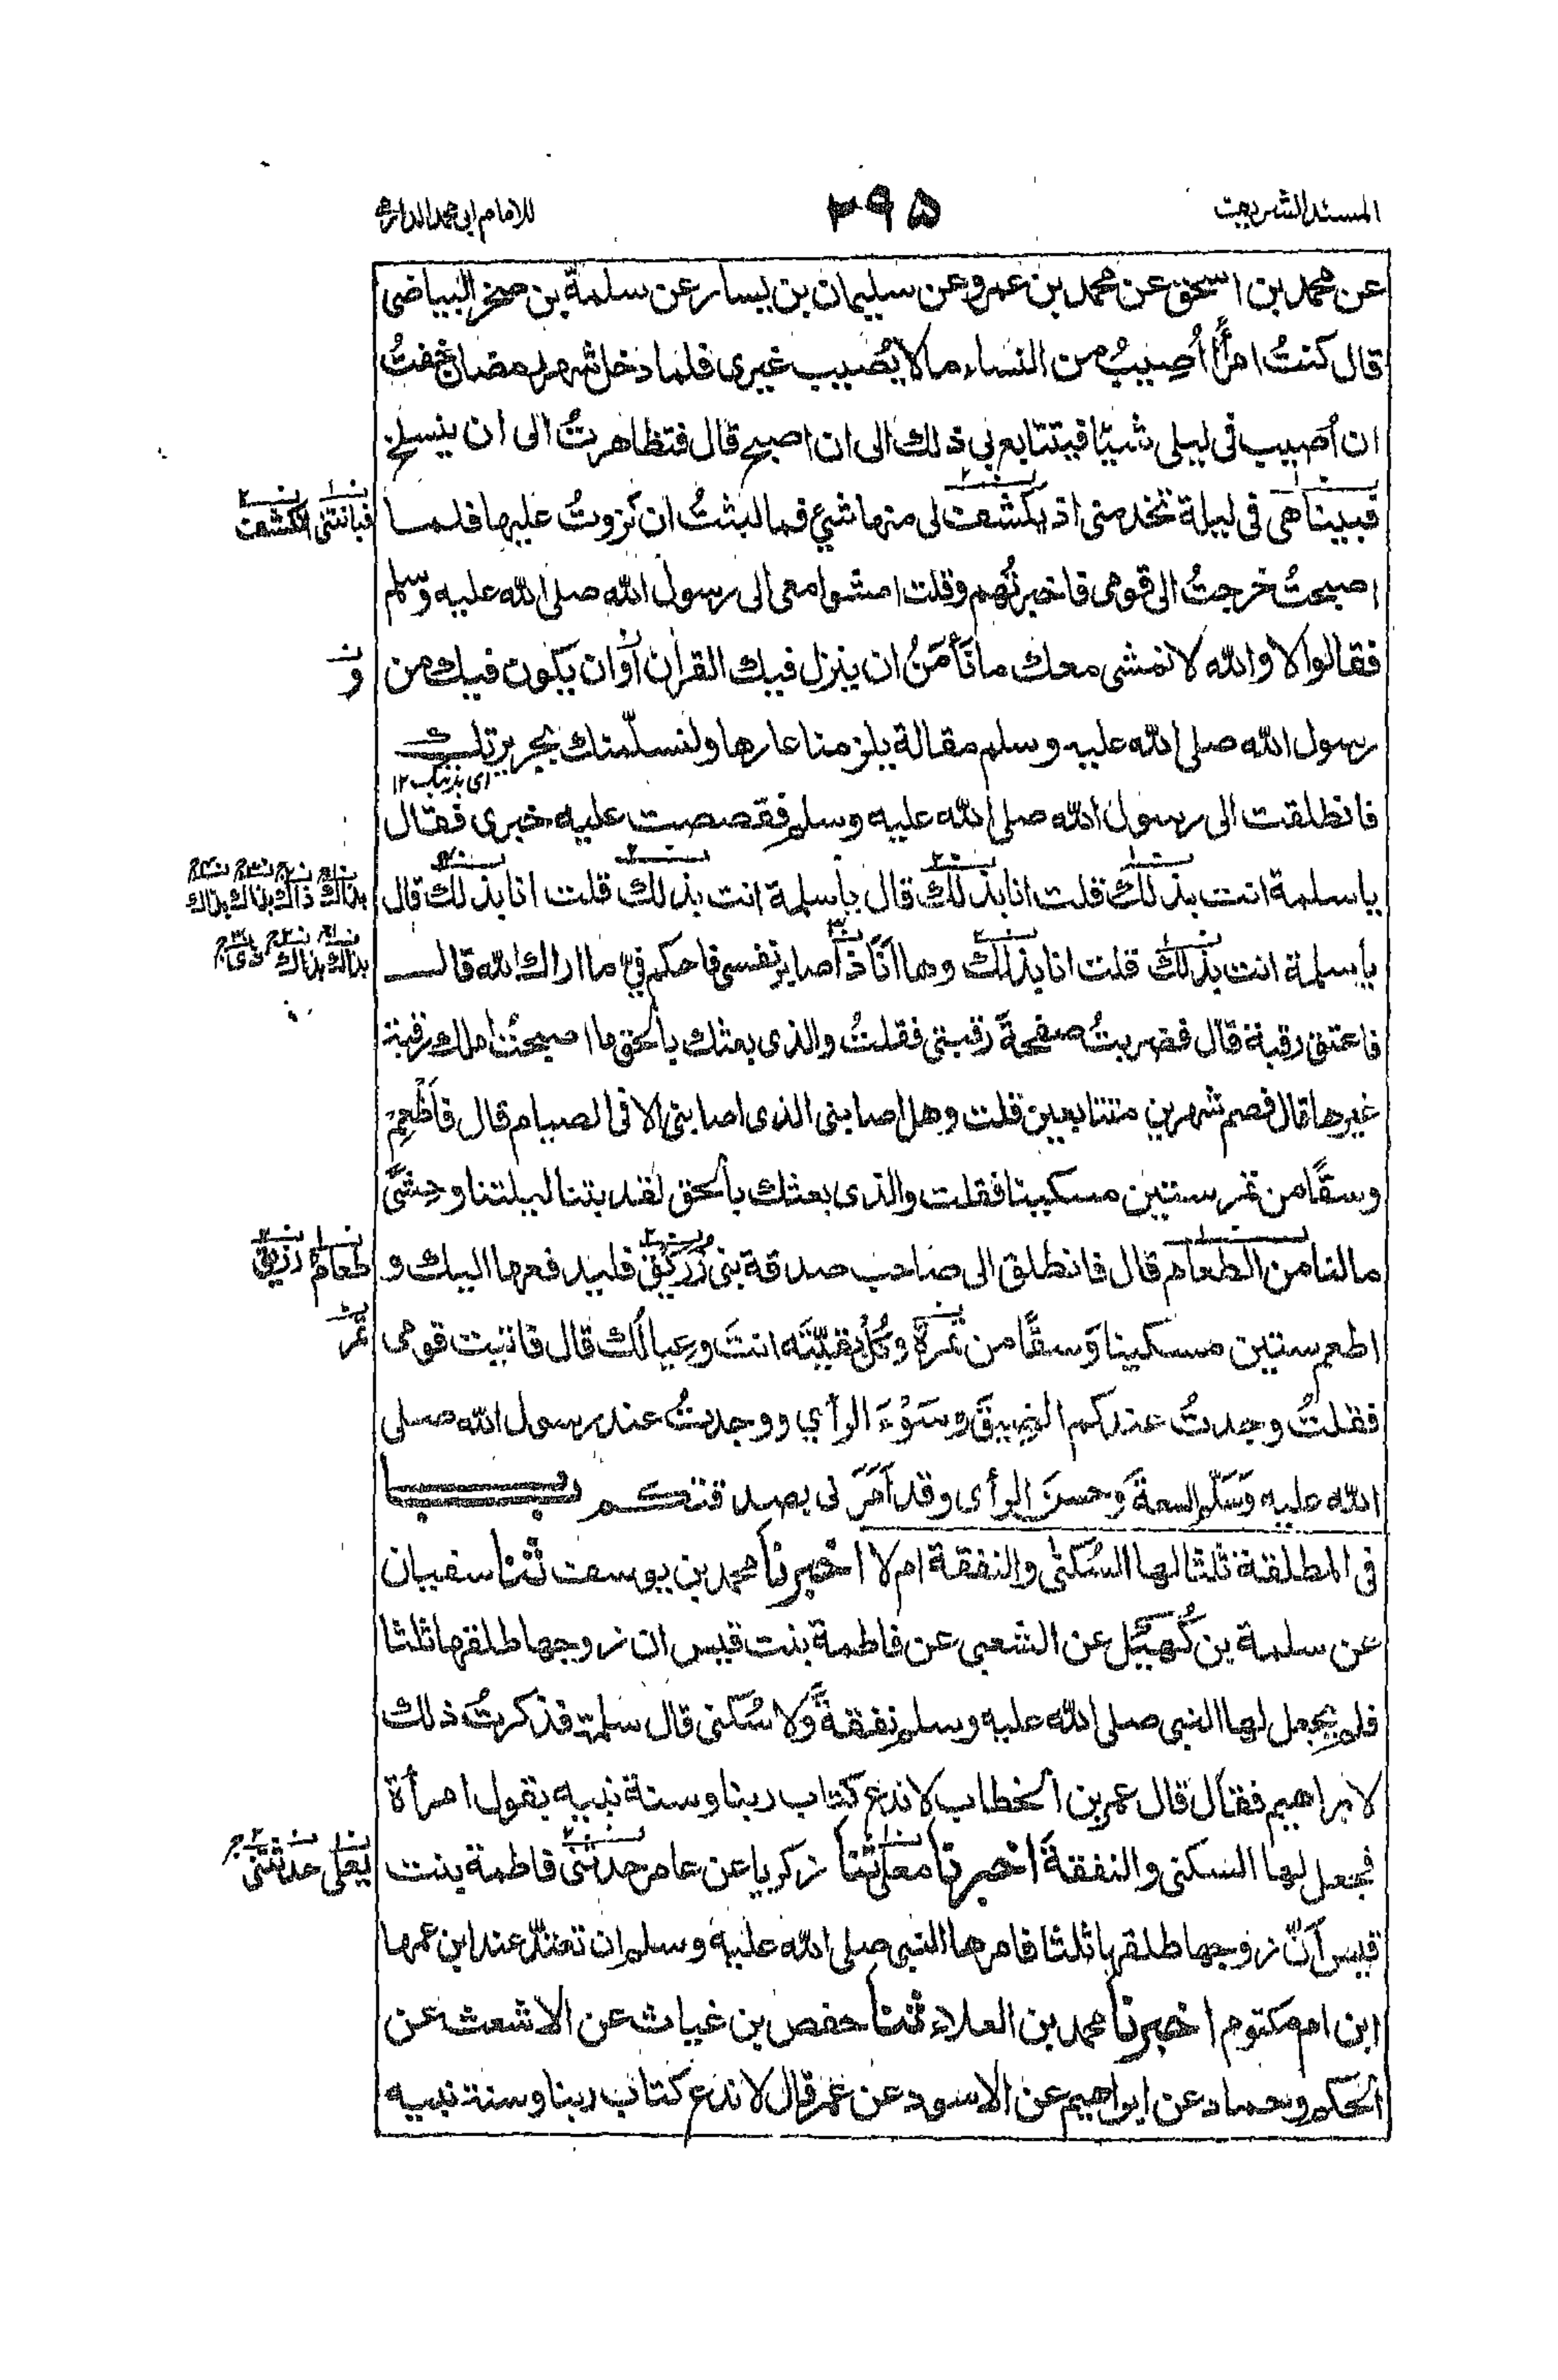 المسند الشريف
۲۹۵
للامام ابى محمد الدارمى
عن محمد بن اسحق عن محمد بن عمرو عن سليمان بن يسار عن سلمة بن صخر البياضى
قال كنتُ امرأً أُصِيبُ من النساء ما لا يُصيب غيرى فلما دخل شهر رمضان خفتُ
ان أصيب فى ليلى شيئا فيتتابع بى ذلك الى ان اصبح قال فتظاهرتُ الى ان ينسلخ
فبينا هى فى ليلة تخدمنى اذ يكشف لى منها شئ فما لبثتُ ان نزوتُ عليها فلما
فباتتنى تكشف
اصبحتُ خرجتُ الى قومى فاخبرتُهم وقلت امشوا معى الى رسول الله صلى الله عليه وسلم
فقالوا لا والله لا نمشى معك ما نَأمَنُ ان ينزل فيك القران أو ان يكون فيك من
و
رسول الله صلى الله عليه وسلم مقالة يلزمنا عارها ولنسلّمنك بجريرتك
اى بذنبك ۱۲
فانطلقت الى رسول الله صلى الله عليه وسلم فقصصت عليه خبرى فقال
يا سلمة انت بذلك قلت انا بذلك قال يا سلمة انت بذلك قلت انا بذلك قال
بذاك ذاك بذاك بذاك
يا سلمة انت بذلك قلت انا بذلك وها انَا ذا صابر نفسى فاحكم فىّ ما اراك الله قال
بذاك بذاك ذى
فاعتق رقبة قال فضربتُ صفحةَ رقبتى فقلتُ والذى بعثك بالحق ما اصبحتُ املك رقبة
غيرها قال فصم شهرين متتابعين قلت وهل اصابنى الذى اصابنى الا فى الصيام قال فاَطْعِم
وسقًا من تمر ستين مسكينا فقلت والذى بعثك بالحق لقد بتنا ليلتنا وحشًى
ما لنا من الطعام قال فانطلق الى صاحب صدقة بنى زُرَيق فليدفعها اليك و
طعام رزيق
اطعم ستين مسكينا وَسقًا من تمرة وكُل بقيّتَه انتَ وعيالُك قال فاتيت قومى
تمر
فقلتُ وجدتُ عندكم الضِيقَ وسَوْءَ الرأي ووجدتُ عند رسول الله صلى
الله عليه وَسَلّم السعةَ وحسنَ الرأى وقد اَمَرَ لى بصدقتكم باب
فى المطلقة ثلثا لها السُكنٰى والنفقة ام لا اخبرنا محمد بن يوسف ثنا سفيان
عن سلمة بن كُهَيْل عن الشعبى عن فاطمة بنت قيس ان زوجها طلقها ثلثا
فلم يجعل لها النبى صلى الله عليه وسلم نفقةً ولا سُكنى قال سلمة فذكرتُ ذلك
لابراهيم فقال قال عمر بن الخطاب لا ندع كتاب ربنا وسنة نبيه بقول امرأة
فجعل لها السكنى والنفقة اخبرنا معلى ثنا زكريا عن عامر حدثنى فاطمة بنت
يعلى حدثتنى
قيس اَنّ زوجها طلقها ثلثا فامرها النبى صلى الله عليه وسلم ان تعتدّ عند ابن عمها
ابن ام مكتوم اخبرنا محمد بن العلاء ثنا حفص بن غياث عن الاشعث عن
الحكم وحماد عن ابراهيم عن الاسود عن عمر قال لا ندع كتاب ربنا وسنة نبيه